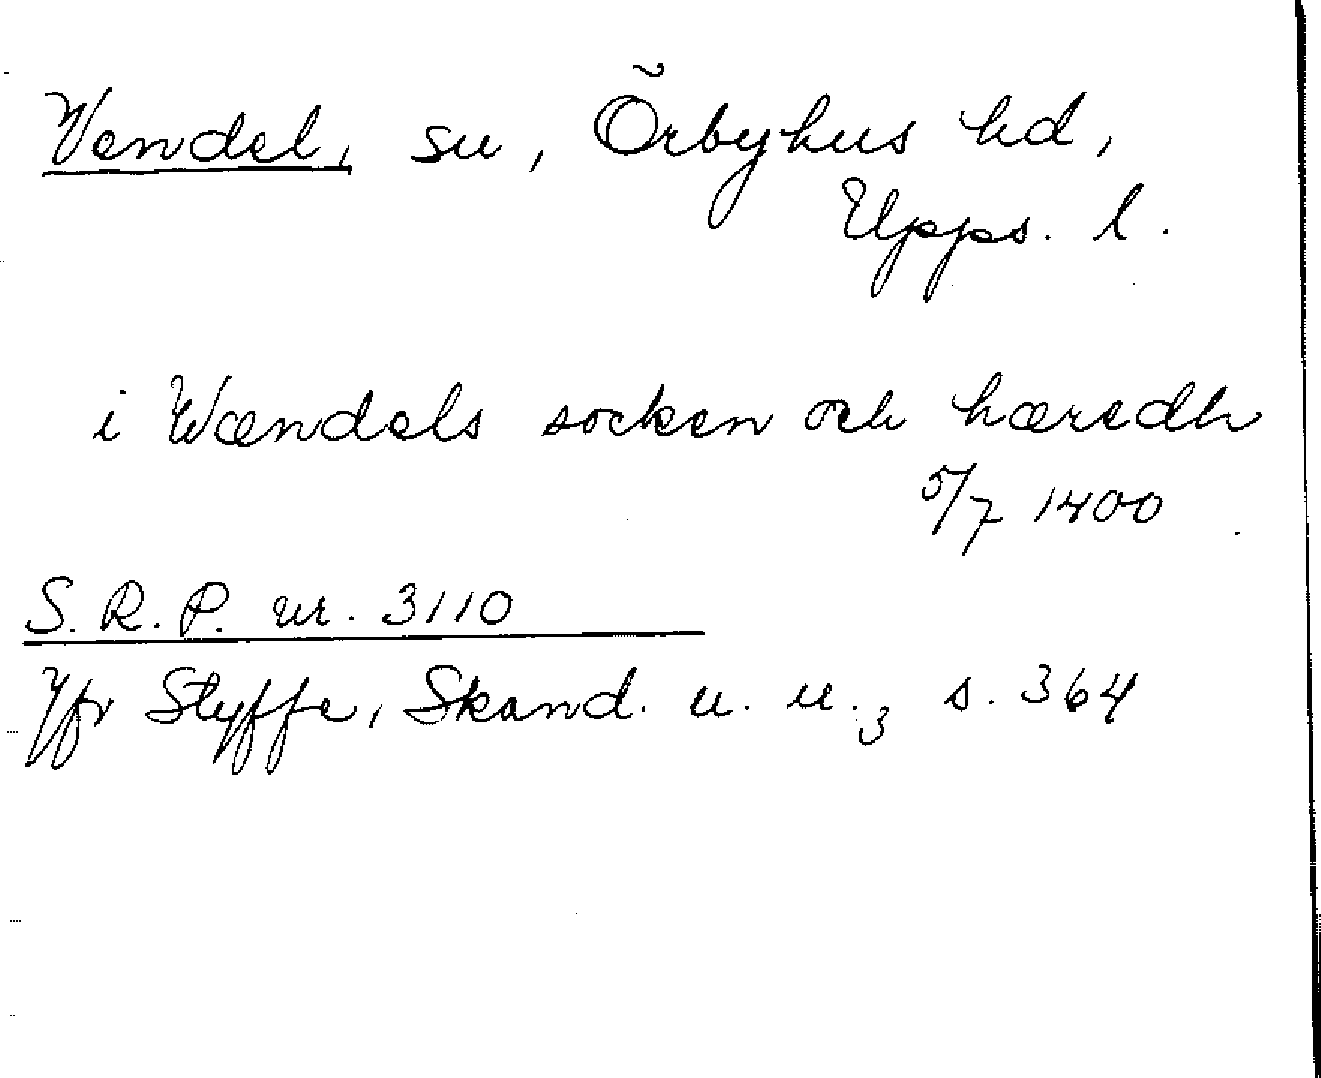 Vendel, sn, Örbyhus hd,
Upps. l.
i Wændels socken och hæredh
5/7 1400
S. R. P. nr. 3110
Jfr Styffe, Skand. u. u.3 s. 364